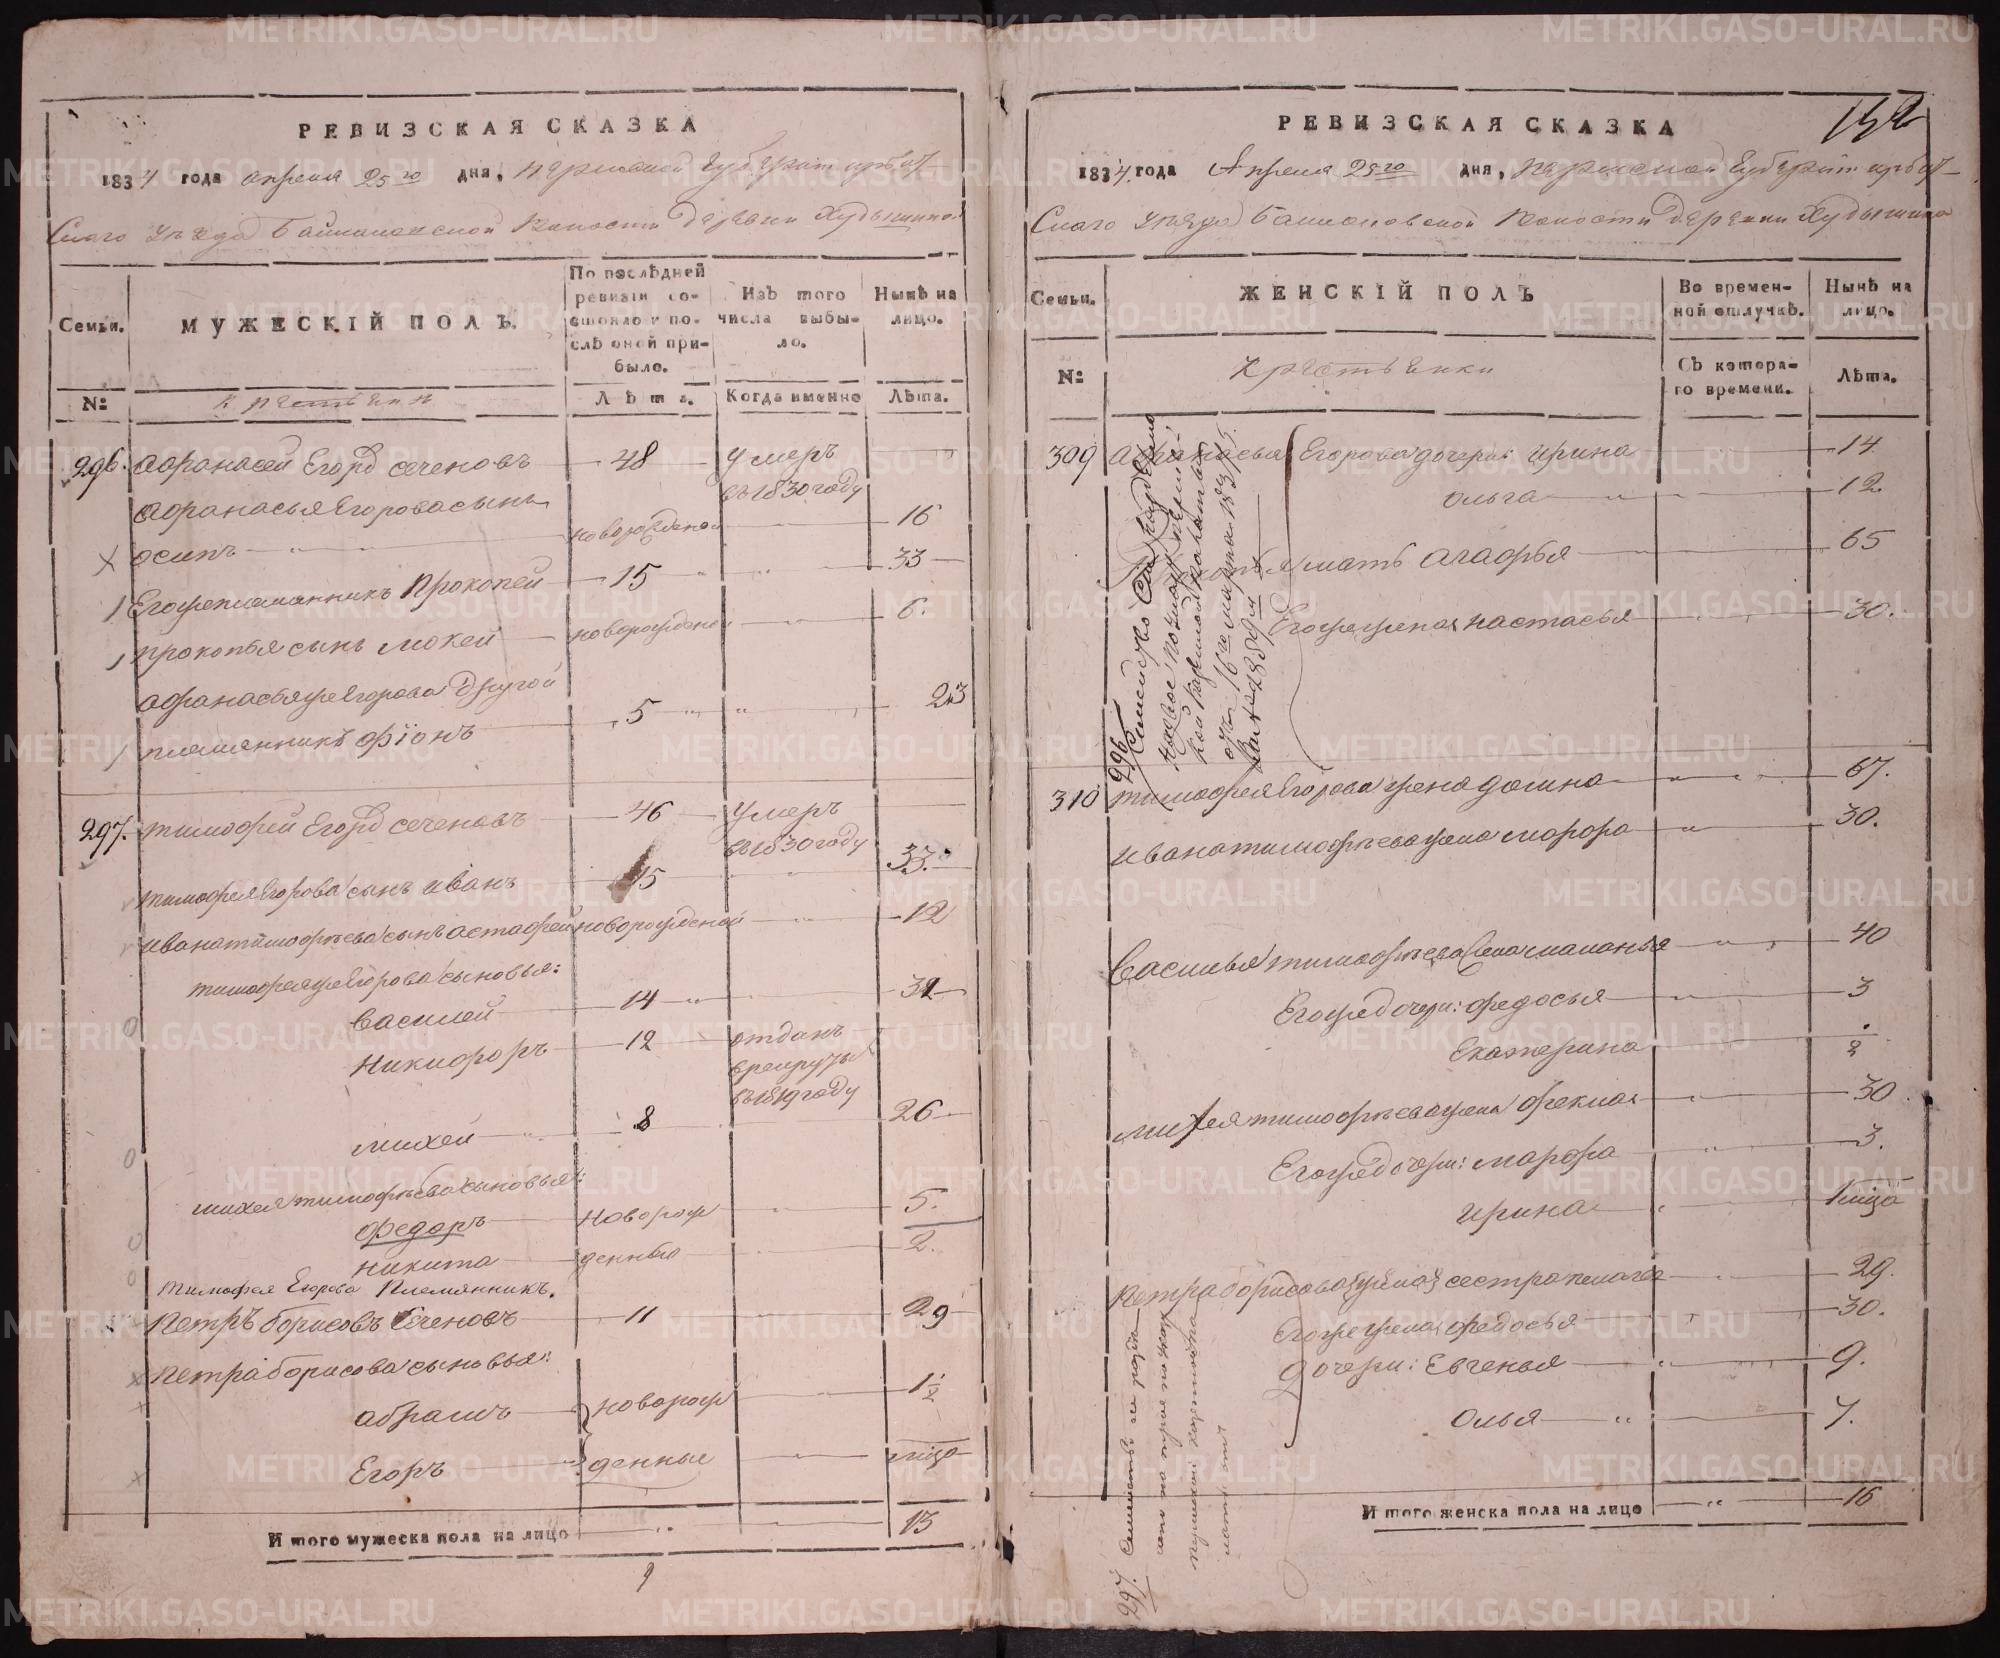 РЕВИЗСКАЯ СКАЗКА
1834 года апреля 25го дня, Пермской Губернии ирбит-
скаго уѣзда Баймаковской волости деревни Худышина
Семьи.
МУЖЕСКІЙ ПОЛЪ.
По послѣдней ревизіи состояло и послѣ оной прибыло.
Изъ того числа выбыло.
Нынѣ на лицо.
№
крестьянъ
Лѣта.
Когда именно
Лѣта.
296. Афанасей Егоров сеченовъ 48 умеръ
въ 1830 году
Афанасья Егорова сынъ
осипъ новорожденой 16
Егожеплемянникъ Прокопей 15 33
прокопья сынъ мокей новорожденой 6.
афанасьяжеЕгорова другой
племянникъ фіонъ 5 23
297. тимофей Егоров сеченовъ 46 умеръ
въ 1830 году
тимофея Егорова сынъ иванъ 15 33.
ивана тимофѣева сынъ астафей новорожденой 12
тимофеяжеЕгорова сыновья:
василей 14 32
Никифоръ 12 отданъ
врекруты
въ 1819 году
михей 8 26
михея тимофѣева сыновья:
федоръ новорож 5.
никита денныя 2.
Тимофея Егорова Племянникъ.
петръ борисовъ Сеченовъ 11 29
петра борисова сыновья:
абрамъ новорож 1 1/2
Егоръ денные
И того мужеска пола на лицо 13
9
РЕВИЗСКАЯ СКАЗКА
1834 года Апреля 25го дня, Пермской Губерніи ирбит-
скаго уѣзда Баймаковской волости деревни Худышина
Семьи.
ЖЕНСКІЙ ПОЛЪ
Во временной отлучкѣ.
Нынѣ на лицо.
№
крестьянки
Съ котораго времени.
Лѣта.
309 Афанасья Егорова дочери ирина 14
ольга 12
мать агафья 65
Егожежена настасья 30.
310 тимофея Егорова жена домна 67.
ивана тимофѣева жена марфа 30.
Василья тимофѣева жена маланья 40
Егожедочери: федосья 3
Екатерина 1/2
михея тимофѣева жена фекла 30
Егожедочери: марфа 3.
ирина
петра борисова сестра пелагея 29.
Егожежена федосья 30.
дочери: Евгенья 9.
Олья 7.
И того женска пола на лицо 16
296
297.
METRIKI.GASO-URAL.RU